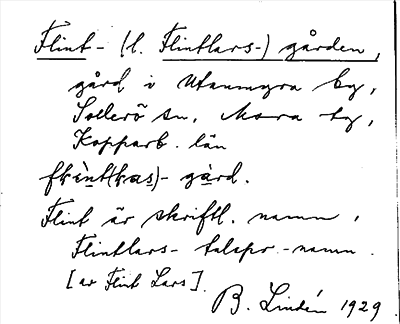 Flint- (l. Flintlars-) gården,
gård i Utanmyra by,
Sollerö sn, Mora tg,
Kopparb. län
gård.
Flint är skriftl. namn,
Flintlars- talspr.-namn.
[av Flint Lars].
B. Lindén 1929